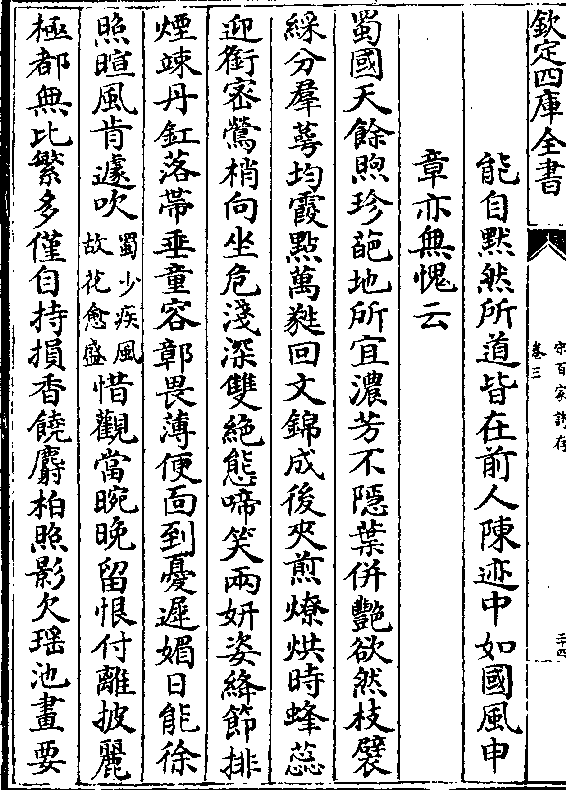 欽定四庫全書
宋百家詩存
卷三
二十四
能自黙然所道皆在前人陳迹中如國風申
章亦無愧云
蜀國天餘煦珍葩地所宜濃芳不隱葉併艷欲然枝襞
綵分羣萼均霞點萬蕤回文錦成後夾煎燎烘時蜂蕊
迎銜宻鶯梢向坐危淺深雙絶態啼笑兩妍姿絳節排
煙竦丹釭落帶垂童容鄣畏薄便靣到憂遲媚日能徐
照暄風肯遽吹蜀少疾風故花愈盛惜觀當晼晚留恨付離披麗
極都無比繁多僅自持損香饒麝柏照影欠瑶池畫要